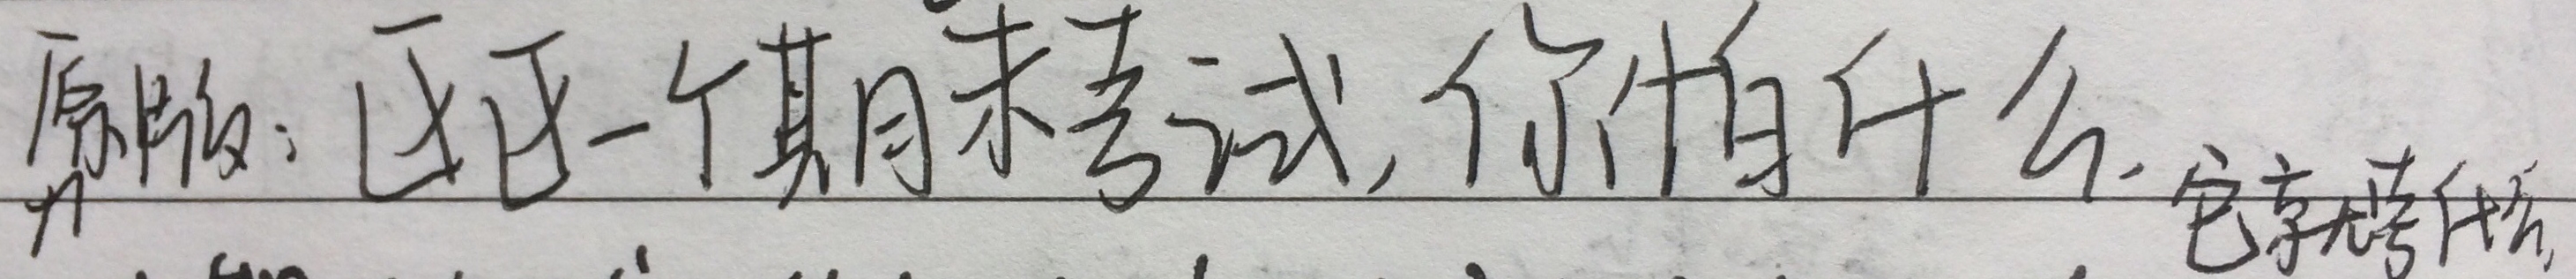 原版：区区一个期末考试，你怕什么.它就考什么,